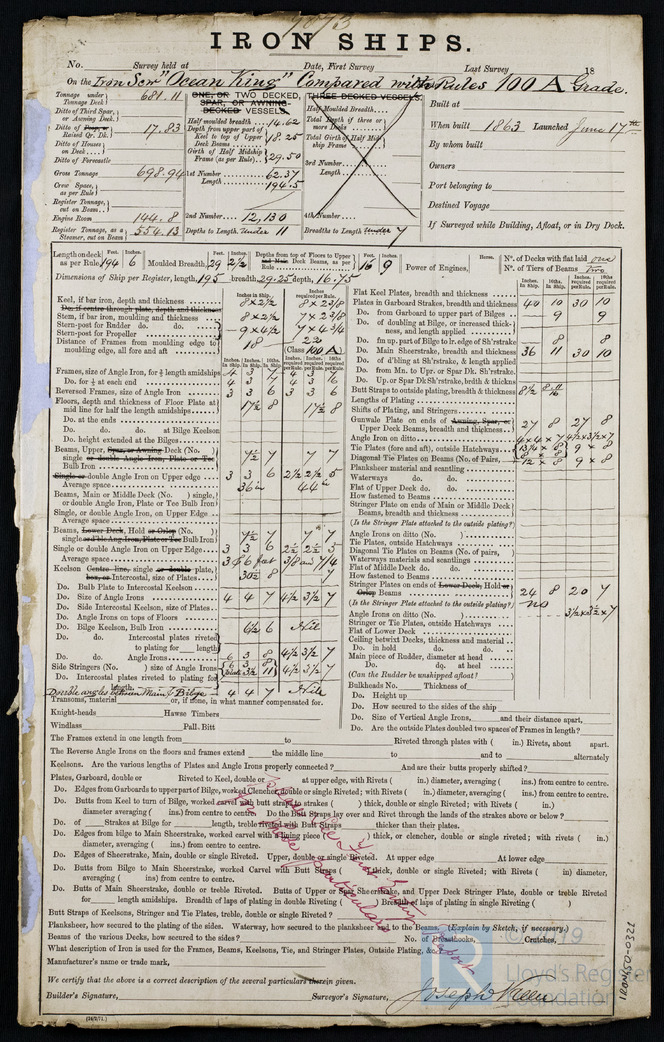 IRON SHIPS.
No. Survey held at Date, First Survey Last Survey 18
On the Iron Scw "Ocean King" Compared with Rules 100 A Grade.
Tonnage under Tonnage Deck 681.11
Ditto of Third Spar, or Awning Deck.
Ditto of Poop, or Raised Qr. Dk. 17.83
Ditto of Houses on Deck
Ditto of Forecastle
Gross Tonnage 698.94
Crew Space, as per Rule
Register Tonnage, cut on Beam
Engine Room 144.8
Register Tonnage, as a Steamer, cut on Beam 554.13
ONE, OR TWO DECKED, SPAR, OR AWNING-DECKED VESSELS.
Half moulded breadth 14.62
Depth from upper part of Keel to top of Upper Deck Beams 18.25
Girth of Half Midship Frame (as per Rule) 29.50
1st Number 62.37
Length 194.5
2nd Number 12,130
Depths to Length Under 11
THREE DECKED VESSELS.
Half Moulded Breadth
Total Depth of three or more Decks
Total Girth of Half Midship Frame
3rd Number
Length
4th Number
Breadths to Length Under 7
Built at
When built 1863 Launched June 17th
By whom built
Owners
Port belonging to
Destined Voyage
If Surveyed while Building, Afloat, or in Dry Dock.
Length on deck as per Rule 194 6 Moulded Breadth 29 2½ Depths from top of Floors to Upper Deck Beams, as per Rule 16 9 Power of Engines, Horse No. of Decks with flat laid one
No. of Tiers of Beams two
Dimensions of Ship per Register, length, 195 breadth, 29.25 depth, 16.75
Keel, if bar iron, depth and thickness 8 x 2½ 8 x 2 3/8
Do. if centre through plate, depth and thickness
Stem, if bar iron, moulding and thickness 8 x 2½ 7 x 2 3/8
Stern-post for Rudder do. do.
Stern-post for Propeller 9 x 4½ 7 x 4¾
Distance of Frames from moulding edge to moulding edge, all fore and aft 18 22
(Class 100 A)
Frames, size of Angle Iron, for ⅗ length amidships 4 3 7 4 3 7
Do. for ⅕ at each end 4 3 7 4 3 6
Reversed Frames, size of Angle Iron 3 3 6 3 3 6
Floors, depth and thickness of Floor Plate at mid line for half the length amidships 17½ 8 17½ 8
Do. at the ends
Do. do. do. at Bilge Keelson
Do. height extended at the Bilges
Beams, Upper, Spar, or Awning Deck (No. ) single or double Angle Iron, Plate or Tee Bulb Iron 7½ 7 7 7
Single or double Angle Iron on Upper edge 3 3 6 2½ 2½ 5
Average space 36 in 44 in
Beams, Main or Middle Deck (No. ) single, or double Angle Iron, Plate or Tee Bulb Iron
Single, or double Angle Iron, on Upper edge
Average space
Beams, Lower Deck, Hold or Orlop (No. ) single or d'ble Ang. Iron, Plate or Tee Bulb Iron 7½ 7 7 7
Single or double Angle Iron on Upper Edge 3 3 6 2½ 2½ 5
Average space
Keelson Centre line, single or double plate, box, or Intercostal, size of Plates
Do. Bulb Plate to Intercostal Keelson
Do. Size of Angle Irons 4 4 7 4½ 3½ 7
Do. Side Intercostal Keelson, size of Plates
Do. Angle Irons on tops of Floors
Do. Bilge Keelson, Bulb Iron 6½ 6 Nil
Do. do. Intercostal plates riveted to plating for length
Do. do. Angle Irons 6 3 8 4½ 3½ 7
Side Stringers (No. ) size of Angle Irons 4½ 3½ 7
Do. Intercostal plates riveted to plating for length
Double angles between Main & Bilge 4 4 7 Nil
Transoms, material or, if none, in what manner compensated for.
Knight-heads Hawse Timbers
Windlass Pall Bitt
Flat Keel Plates, breadth and thickness
Plates in Garboard Strakes, breadth and thickness 40 10 30 10
Do. from Garboard to upper part of Bilges 9 9
Do. of doubling at Bilge, or increased thickness, and length applied
Do. fm up. part of Bilge to lr. edge of Sh'rstrake 8 8
Do. Main Sheerstrake, breadth and thickness 36 11 30 10
Do. of d'bling at Sh'rstrake, & length applied
Do. from Mn. to Upr. or Spar Dk. Sh'rstrake.
Do. Up. or Spar Dk Sh'rstrake, brdth & thickns
Butt Straps to outside plating, breadth & thickness
Lengths of Plating
Shifts of Plating, and Stringers
Gunwale Plate on ends of Awning, Spar, or Upper Deck Beams, breadth and thickness 27 8 27 8
Angle Iron on ditto 4x4x7 4½x3½x7
Tie Plates (fore and aft), outside Hatchways 9 x 8
Diagonal Tie Plates on Beams (No. of Pairs, ) 12 x 8 9 x 8
Planksheer material and scantling
Waterways do. do.
Flat of Upper Deck do. do.
How fastened to Beams
Stringer Plate on ends of Main or Middle Deck Beams, breadth and thickness
(Is the Stringer Plate attached to the outside plating?)
Angle Irons on ditto (No. )
Tie Plates, outside Hatchways
Diagonal Tie Plates on Beams (No. of pairs, )
Waterways materials and scantlings
Flat of Middle Deck do. do.
How fastened to Beams
Stringer Plates on ends of Lower Deck, Hold or Orlop Beams 24 8 20 7
(Is the Stringer Plate attached to the outside plating?) no
Angle Irons on ditto (No. ) 3½x3½x7
Stringer or Tie Plates, outside Hatchways
Flat of Lower Deck
Ceiling betwixt Decks, thickness and material
Do. in hold do. do.
Main piece of Rudder, diameter at head
Do. do. at heel
(Can the Rudder be unshipped afloat?)
Bulkheads No. Thickness of
Do. Height up
Do. How secured to the sides of the ship
Do. Size of Vertical Angle Irons, and their distance apart,
Do. Are the outside Plates doubled two spaces of Frames in length?
The Frames extend in one length from to Riveted through plates with ( in.) Rivets, about apart.
The Reverse Angle Irons on the floors and frames extend the middle line to and to alternately
Keelsons. Are the various lengths of Plates and Angle Irons properly connected? And are their butts properly shifted?
Plates, Garboard, double or Riveted to Keel, double or at upper edge, with Rivets ( in.) diameter, averaging ( ins.) from centre to centre.
Do. Edges from Garboards to upper part of Bilge, worked Clencher, double or single Riveted; with Rivets ( in.) diameter, averaging ( ins.) from centre to centre.
Do. Butts from Keel to turn of Bilge, worked carvel with butt straps to strakes ( ) thick, double or single Riveted; with Rivets ( in.)
diameter averaging ( ins.) from centre to centre. Do the Butt Straps lay over and Rivet through the lands of the strakes above or below?
Do. of Strakes at Bilge for length, treble riveted with Butt Straps thicker than their plates.
Do. Edges from bilge to Main Sheerstrake, worked carvel with a lining piece ( ) thick, or clencher, double or single riveted; with rivets ( in.)
diameter, averaging ( ins.) from centre to centre.
Do. Edges of Sheerstrake, Main, double or single Riveted. Upper, double or single Riveted. At upper edge At lower edge
Do. Butts from Bilge to Main Sheerstrake, worked Carvel with Butt Straps ( ) thick, double or single Riveted; with Rivets ( in) diameter,
averaging ( ins) from centre to centre.
Do. Butts of Main Sheerstrake, double or treble Riveted. Butts of Upper or Spar Sheerstrake, and Upper Deck Stringer Plate, double or treble Riveted
for length amidships. Breadth of laps of plating in double Riveting ( ) Breadth of laps of plating in single Riveting ( )
Butt Straps of Keelsons, Stringer and Tie Plates, treble, double or single Riveted?
Planksheer, how secured to the plating of the sides. Waterway, how secured to the planksheer and to the Beams. (Explain by Sketch, if necessary.)
Beams of the various Decks, how secured to the sides? No. of Breasthooks, Crutches,
What description of Iron is used for the Frames, Beams, Keelsons, Tie, and Stringer Plates, Outside Plating, &c.
Manufacturer's name or trade mark,
We certify that the above is a correct description of the several particulars therein given.
Builder's Signature, Surveyor's Signature, Joseph Keen
© 2019
Lloyd's Register
Foundation
IRON450-0322